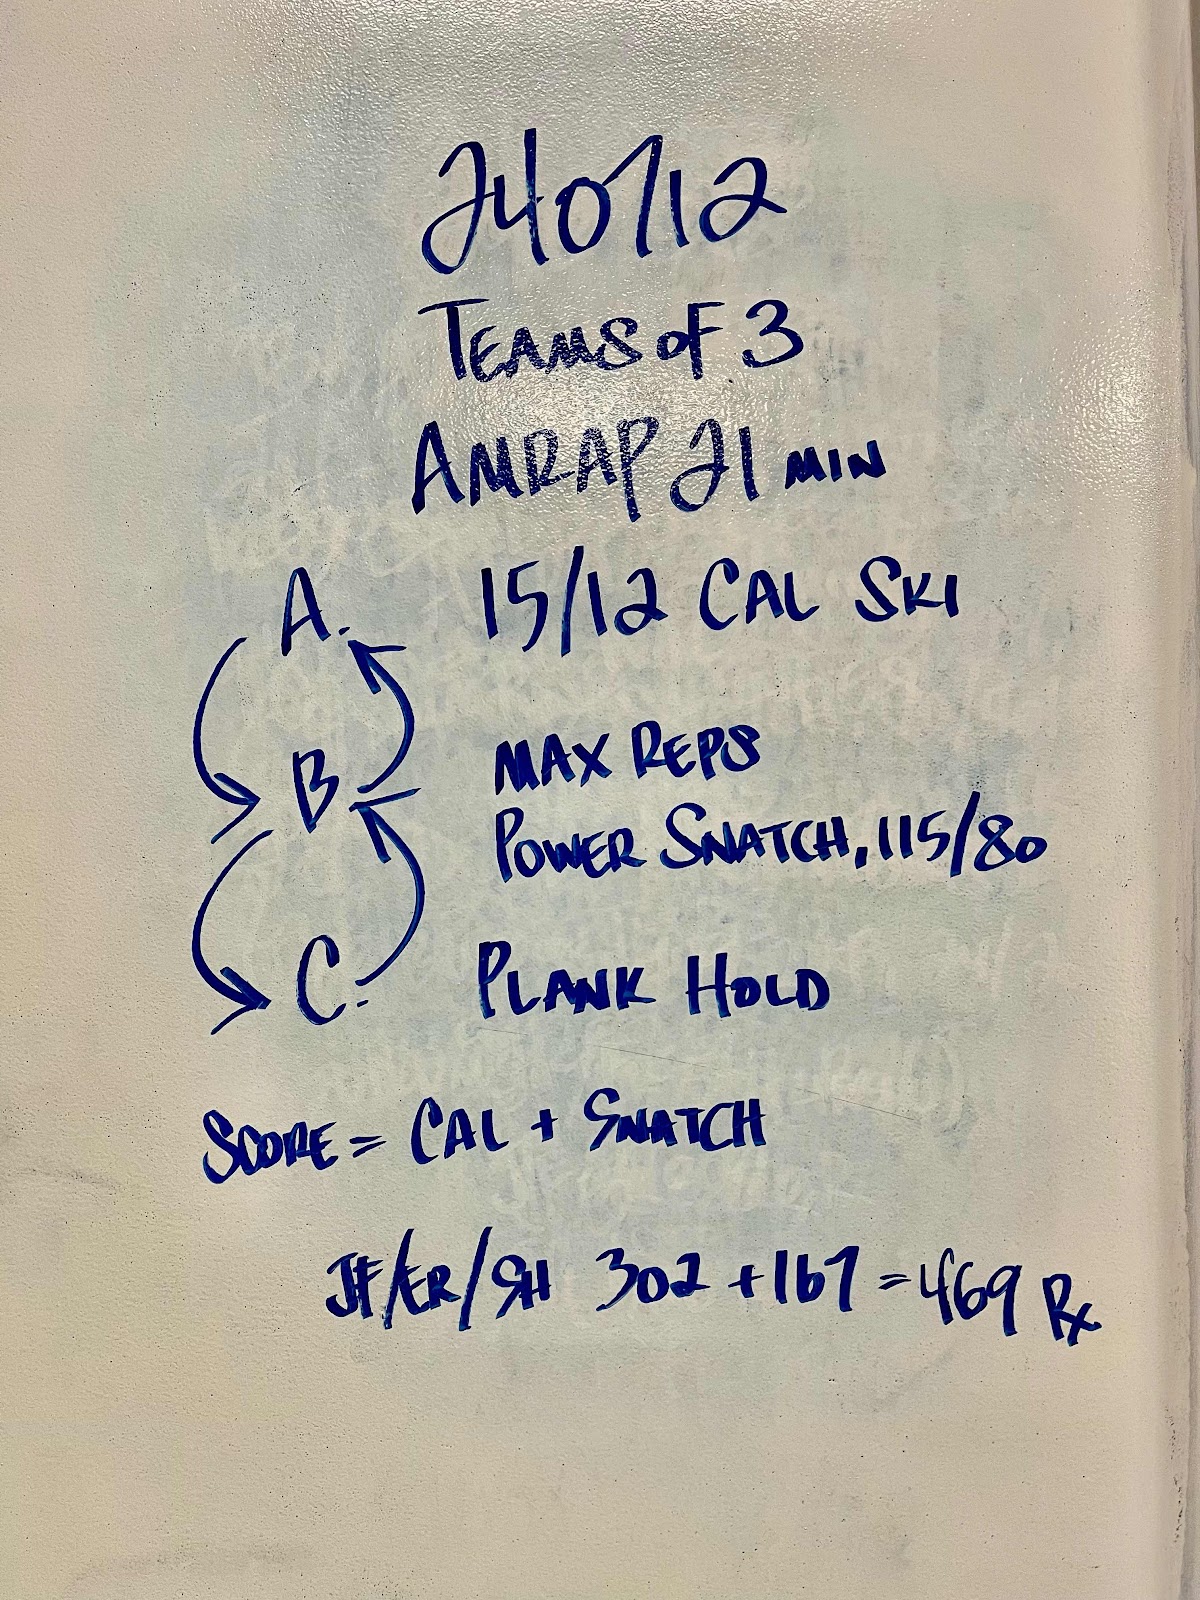 240712
TEAMS OF 3
AMRAP 21 MIN
A. 15/12 CAL SKI
B MAX REPS
POWER SNATCH, 115/80
C. PLANK HOLD
SCORE = CAL + SNATCH
JF/ER/SH 302 + 167 = 469 Rx